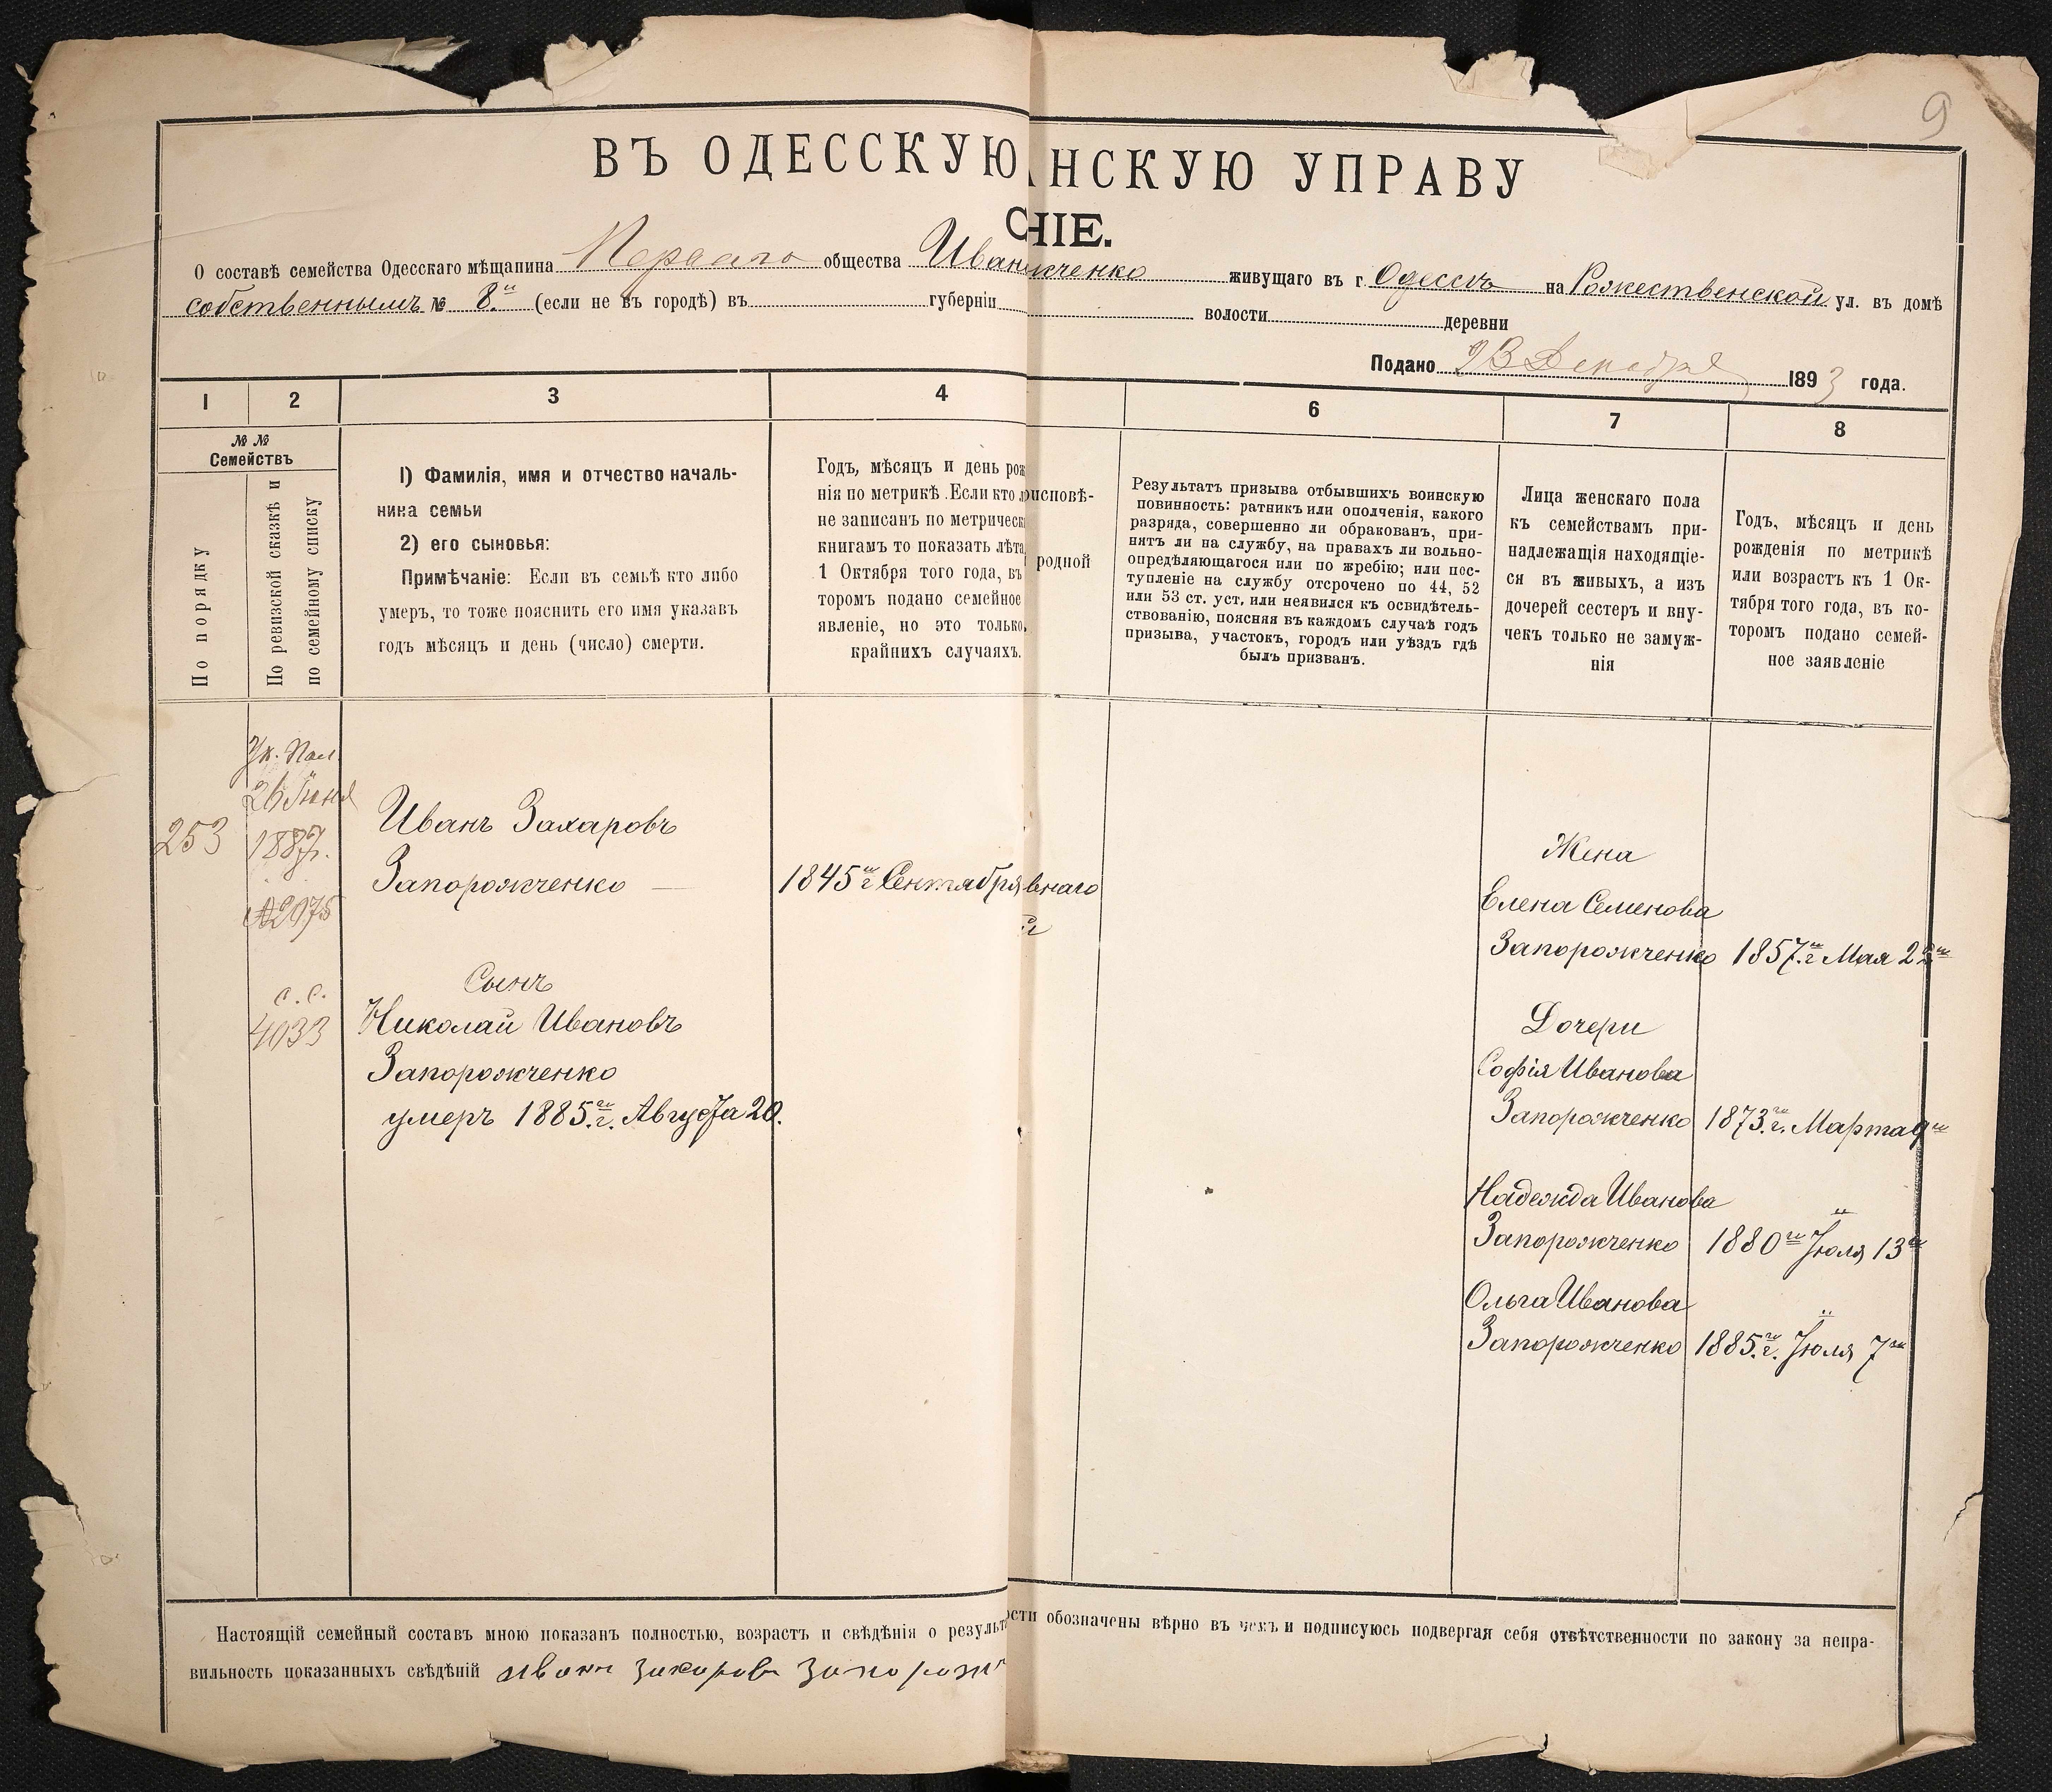 9
ВЪ ОДЕССКУЮ НСКУЮ УПРАВУ
НІЕ.
О составѣ семейства Одесскаго мѣщанина Перваго общества Иван женко живущаго въ г. Одессѣ на Рожественской ул. въ домѣ
собственнымъ № 8й (если не въ городѣ) въ губерніи волости деревни
Подано 23 Декабря 1893 года.
1 2 3 4 6 7 8
№ №
Семействъ
По порядку
По ревизской сказкѣ и
по семейному списку
1) Фамилія, имя и отчество началь-
ника семьи
2) его сыновья:
Примѣчаніе: Если въ семьѣ кто либо
умеръ, то тоже пояснить его имя указавъ
годъ мѣсяцъ и день (число) смерти.
Годъ, мѣсяцъ и день рож
нія по метрикѣ. Если кто л
не записанъ по метрическ
книгамъ то показать лѣта
1 Октября того года, въ
торомъ подано семейное
явленіе, но это только
крайнихъ случаяхъ.
исповѣ-
родной
Результатъ призыва отбывшихъ воинскую
повинность: ратникъ или ополченія, какого
разряда, совершенно ли обракованъ, при-
нятъ ли на службу, на правахъ ли вольно-
опредѣляющагося или по жребію; или пос-
тупленіе на службу отсрочено по 44, 52
или 53 ст. уст. или неявился къ освидѣтель-
ствованію, поясняя въ каждомъ случаѣ годъ
призыва, участокъ, городъ или уѣздъ гдѣ
былъ призванъ.
Лица женскаго пола
къ семействамъ при-
надлежащія находящіе-
ся въ живыхъ, а изъ
дочерей сестеръ и вну-
чекъ только не замуж-
нія
Годъ, мѣсяцъ и день
рожденія по метрикѣ
или возрастъ къ 1 Ок-
тября того года, въ ко-
торомъ подано семей-
ное заявленіе
253
Ук. Пал.
26 Іюня
1887г.
№2975
с. с.
4033
Иванъ Захаровъ
Запорожченко
1845го г Сентября
внаго
й
Сынъ
Николай Ивановъ
Запорожченко
умеръ 1885.го г. Августа 20.
Жена
Елена Семенова
Запорожченко 1857.го г Мая 22го
Дочери
Софія Иванова
Запорожченко 1873.го г. Марта 9го
Надежда Иванова
Запорожченко 1880го Іюля 13го
Ольга Иванова
Запорожченко 1885.го г. Іюля 7го
Настоящій семейный составъ мною показанъ полностью, возрастъ и свѣдѣнія о результ ости обозначены вѣрно въ чемъ и подписуюсь подвергая себя отвѣтственности по закону за непра-
вильность показанныхъ свѣдѣній иванъ захаровъ запорож